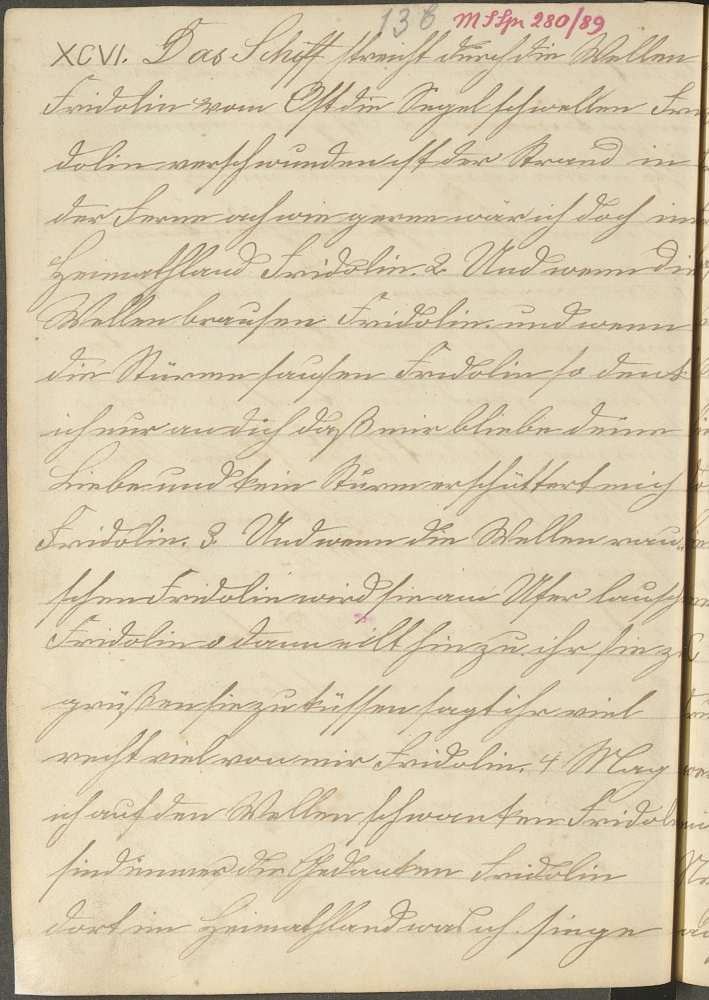 136 MSSpr 280/89
XCVI. Das Schiff streicht durch die Wellen
Fridolin vom Ost die Segel schwellen Fri
dolin verschwunden ist der Strand in
der Ferne ach wie gerne wär ich doch im
Heimathland Fridolin. 2. Und wenn die
Wellen brausen Fridolin. und wenn
die Stürme sausen Fridolin so denk
ich nur an dich daß mir bliebe deine
Liebe und kein Sturm erschüttert mich
Fridolin. 3. Und wenn die Wellen rau„
schen Fridolin wird sie am Ufer lauschen
Fridolin o dann eilt hin zu ihr sie zu
grüßen sie zu küssen sagt ihr viel
recht viel von mir Fridolin. 4 Mag
ich auf den Wellen schwanken Fridolin
sind immer die Gedanken Fridolin
dort im Heimathland was ich singe